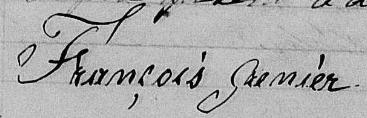 François Grenier